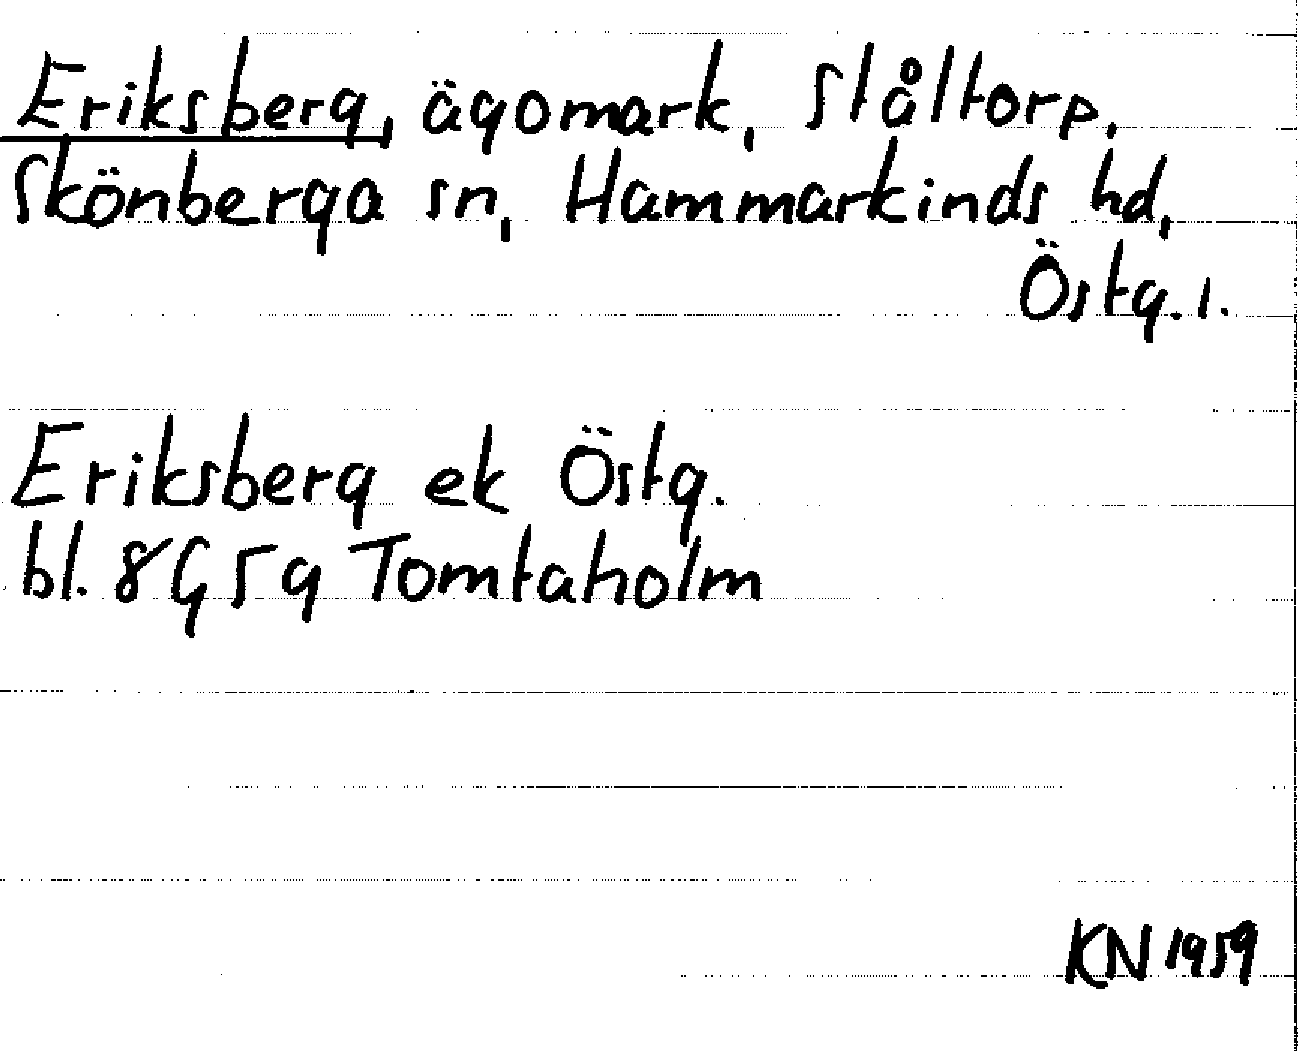 Eriksberg, ägomark, Ståltorp,
Skönberga sn, Hammarkinds hd,
Östg. l.
Eriksberg ek Östg.
bl. 8G5g Tomtaholm
KN 1959